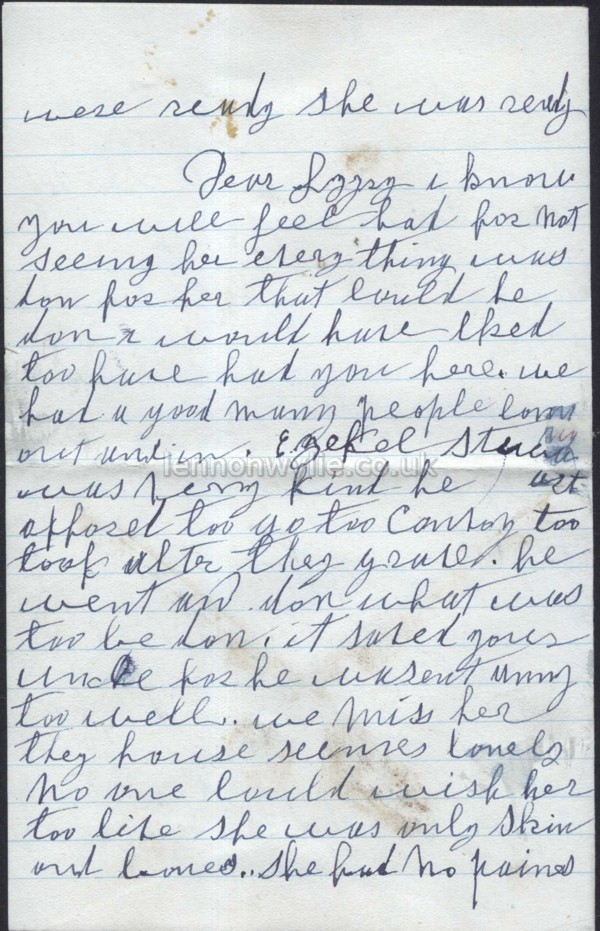 were redy she was redy
Dear Lyzzy i know
you will feel bad for not
seeing her every thing was
don for her that could be
don i would have liked
too have had you here. we
had a good many people comi
out and in. Ezekel Stuw
ng
was very kind he art
opposed too go too Conroy too
look after they grave. he
went and don what was
too be don. it saved your
uncle for he wasent anny
too well. we miss her
they house seemes lonely
No one could wish her
too live she was only skin
and bones.. she had No paines
lennonwylie.co.uk